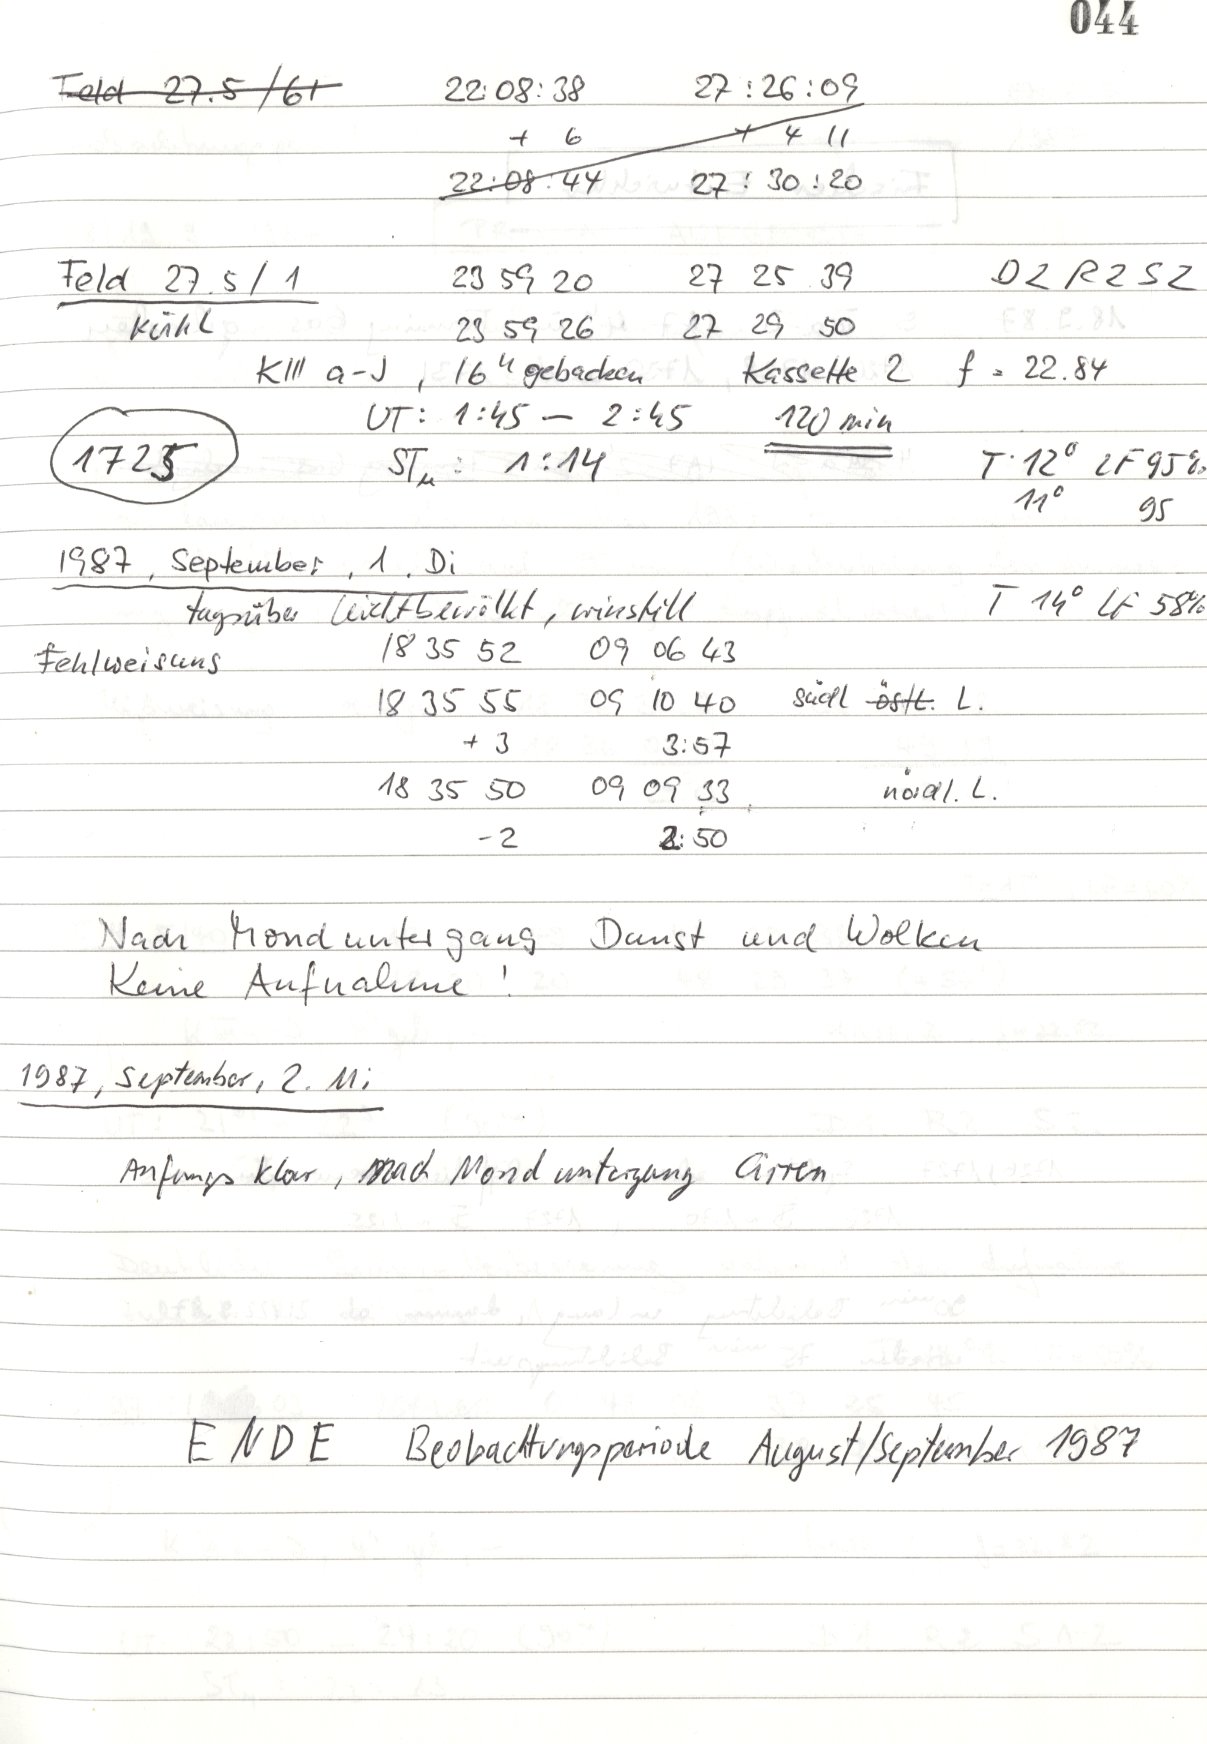 044
Feld 27.5/61 22:08:38 27:26:09
+ 6 + 4 11
22:08:44 27:30:20
Feld 27.5/1 23 59 20 27 25 39 D2 R2 S2
Kühl 23 59 26 27 29 50
KIII a-J, 16ʰ gebacken Kassette 2 f = 22.84
UT: 1:45 — 2:45 120 min
1725 ST : 1:14 T 12° LF 95%
11° 95
1987, September, 1. Di
tagsüber leichtbewölkt, winstill T 14° LF 58%
Fehlweisung 18 35 52 09 06 43
18 35 55 09 10 40 südl östl. L.
+ 3 3:57
18 35 50 09 09 33 nördl. L.
- 2 2:50
Nach Monduntergang Dunst und Wolken
Keine Aufnahme!
1987, September, 2. Mi
Anfangs klar, nach Monduntergang Cirren
ENDE Beobachtungsperiode August/September 1987